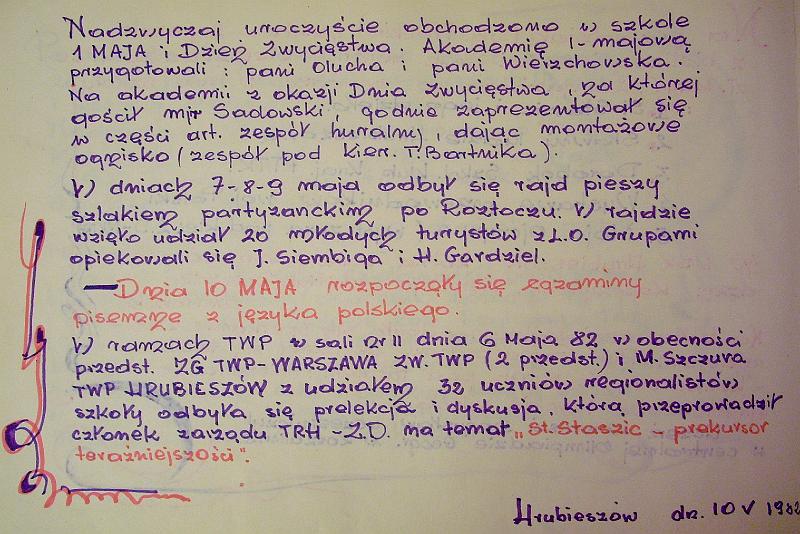 Nadzwyczaj uroczyście obchodzono w szkole
1 MAJA i Dzień Zwycięstwa. Akademię 1-majową
przygotowali: pani Olucha i pani Wierzchowska.
Na akademii z okazji Dnia Zwycięstwa, na której
gościł mjr Sadowski, godnie zaprezentował się
w części art. zespół huralny, dając montażowe
ognisko (zespół pod kier. T. Bartnika).
W dniach 7-8-9 maja odbył się rajd pieszy
szlakiem partyzanckim po Roztoczu. W rajdzie
wzięło udział 20 młodych turystów z L.O. Grupami
opiekowali się J. Siembiga i H. Gardziel.
— Dnia 10 MAJA rozpoczęły się egzaminy
pisemne z języka polskiego.
W ramach TWP w sali nr II dnia 6 Maja 82 w obecności
przedst. ZG TWP-WARSZAWA ZW. TWP (2 przedst.) i M. Szczura
TWP HRUBIESZÓW z udziałem 32 uczniów regionalistów
szkoły odbyła się prelekcja i dyskusja, którą przeprowadził
członek zarządu TRH - Z.D. na temat „St. Staszic - prekursor
teraźniejszości".
Hrubieszów dn. 10 V 1982